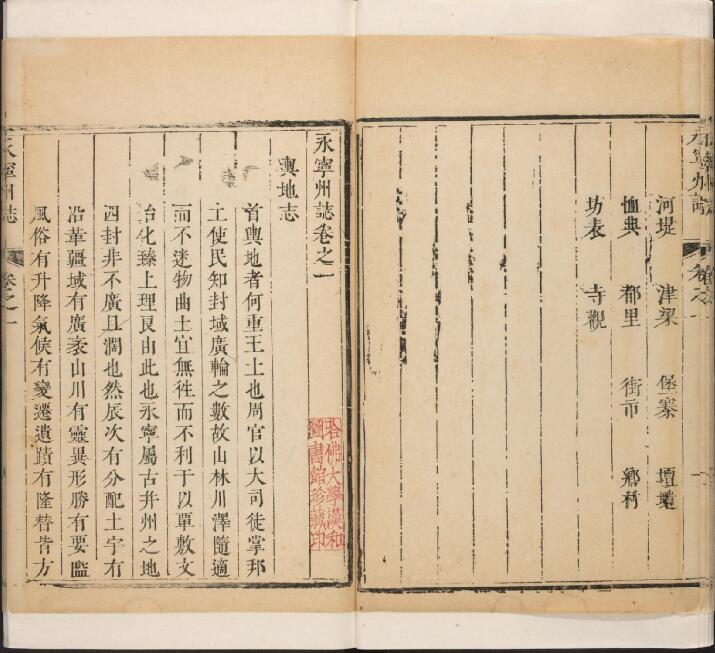 永寧州誌
河堤 津梁 堡寨 壇壝
恤典 都里 街市 鄉村
坊表 寺觀
永寧州誌卷之一
輿地志
首輿地者何重王土也周官以大司徒掌邦
土使民知封域廣輪之數故山林川澤隨適
而不迷物曲土宜無徃而不利于以單敷文
治化臻上理良由此也永寧屬古幷州之地
四封非不廣且濶也然辰次有分配土宇有
沿革疆域有廣袤山川有靈異形勝有要監
風俗有升降氣候有變遷遺蹟有隆替昔方
永寧州誌 卷之一
哈佛大學漢和
圖書館珍藏印